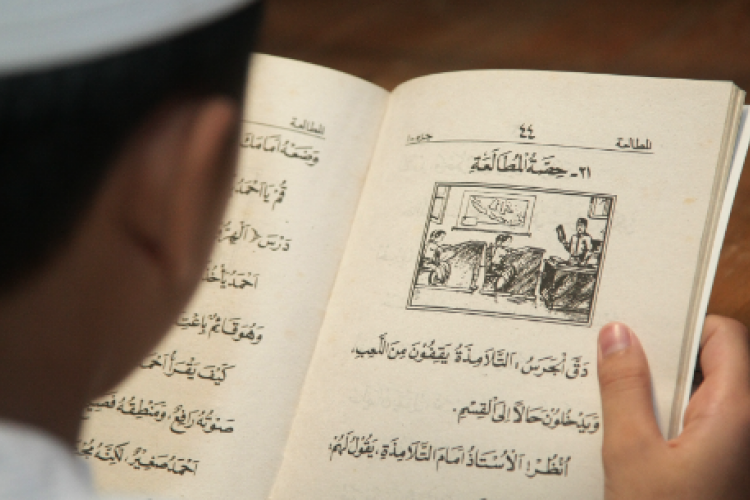 المطالعة ٤٤
٢١- حِصَّةُ الْمُطَالَعَةِ
دَقَّ الْجَرَسُ، اَلتَّلَامِذَةُ يَقِفُوْنَ مِنَ اللَّعِبِ،
وَيَدْخُلُوْنَ حَالاً إِلَى الْقِسْمِ.
اُنْظُرْ! اَلْأُسْتَاذُ أَمَامَ التَّلَامِذَةِ، يَقُوْلُ لَهُمْ:
المطالعة
وَضَعْهُ أَمَامَكَ
قُمْ يَا أَحْمَدُ
دَرْسَ (الْهِرّ
اَحْمَدُ يَأْخُذُ
وَهُوَ قَائِمٌ بِاعْتِ
كَيْفَ يَقْرَأُ أَحْمَ
صَوْتُهُ رَافِعٌ، وَمَنْطِقُهُ فَصِيْ
اَحْمَدُ صَغِيْرٌ، لٰكِنَّهُ